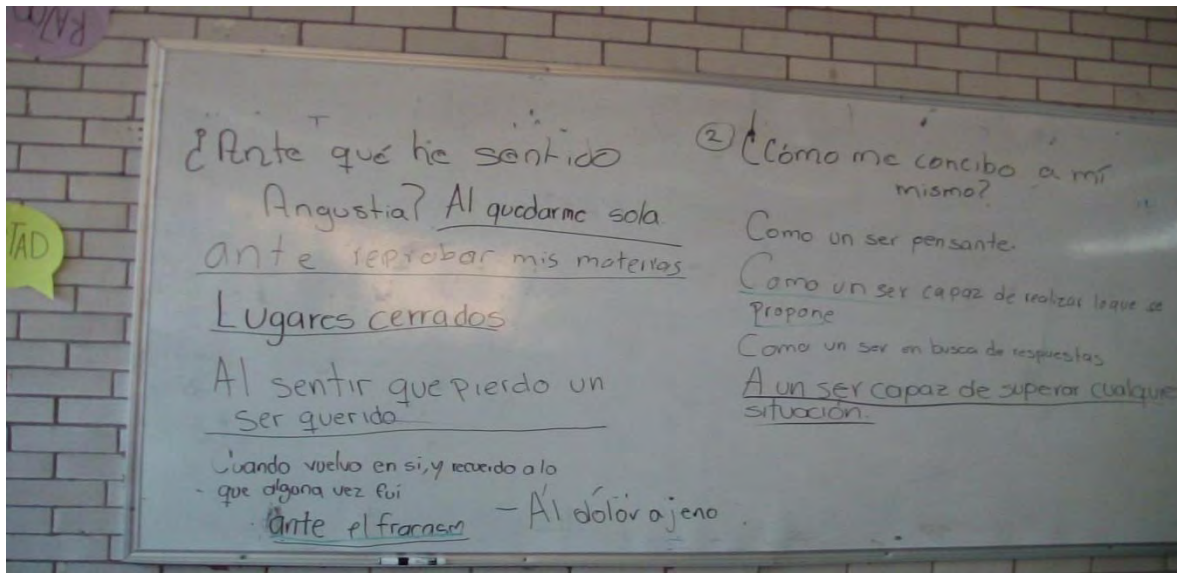 TAD
¿Ante qué he sentido
Angustia? Al quedarme sola
ante reprobar mis materias
Lugares cerrados
Al sentir que pierdo un
ser querido
Cuando vuelvo en si, y recuerdo a lo
- que alguna vez fui
ante el fracaso
- Al dolor ajeno
② ¿Cómo me concibo a mí
mismo?
Como un ser pensante.
Como un ser capaz de realizar lo que se
propone
Como un ser en busca de respuestas
A un ser capaz de superar cualquie
situación.